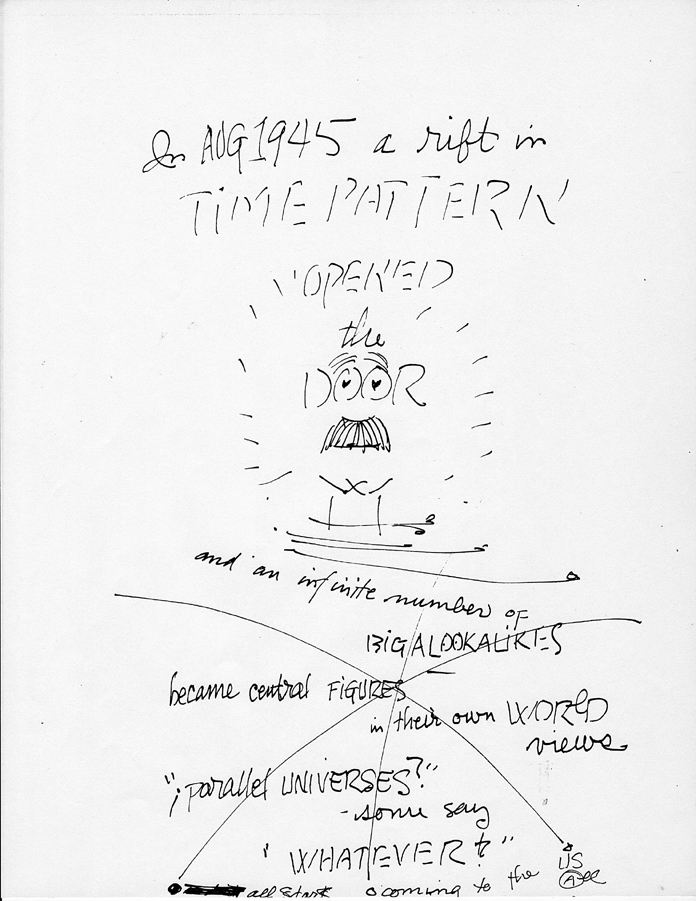 In AUG 1945 a rift in
TiME PATTERN
"OPENED
the
DOOR
and an infinite number of
BiG A LOOKALIKES
became central FIGURES
in their own WORLD
views
"¡parallel UNIVERSES?"
- some say
"WHATEVER?"
all start coming to the US
A